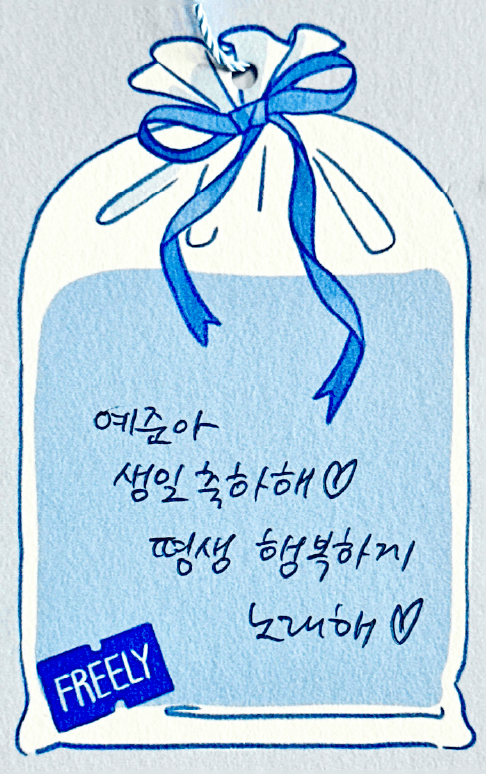 예준아
생일 축하해♡
평생 행복하게
노래해♡
FREELY